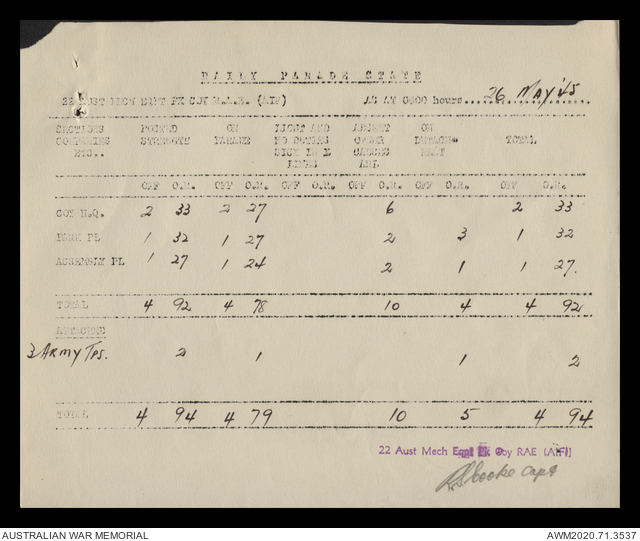 DAILY PARADE STATE
22 AUST MECH EQPT PK COY R.A.E. (AIF) AS AT 0800 hours....26 MAY '45......
SECTIONS POSTED ON LIGHT AND ABSENT ON
COMPANIES STRENGTH PARADE NO DUTIES OTHER DETACH- TOTAL
ETC.. SICK IN CAUSES MENT
LINES AWL
OFF O.R. OFF O.R. OFF O.R. OFF O.R. OFF O.R. OFF O.R.
COY H.Q. 2 33 2 27 6 2 33
PARK PL 1 32 1 27 2 3 1 32
ASSEMBLY PL 1 27 1 24 2 1 1 27.
TOTAL 4 92 4 78 10 4 4 92
ATTACHED
3 ARMY TPS. 2 1 1 2
TOTAL 4 94 4 79 10 5 4 94
22 Aust Mech Eqpt Pk Coy RAE (AIF)
Capt
AUSTRALIAN WAR MEMORIAL AWM2020.71.3537